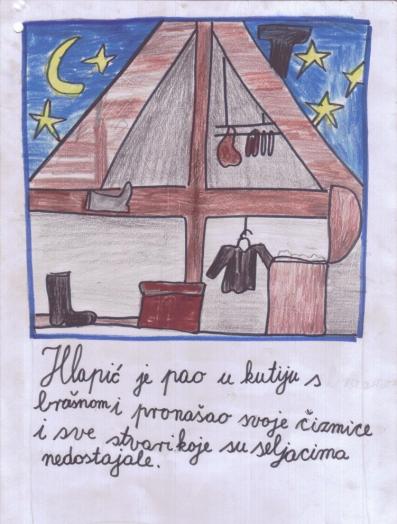 Hlapić je pao u kutiju s
brašnom i pronašao svoje čizmice
i sve stvari koje su seljacima
nedostajale.